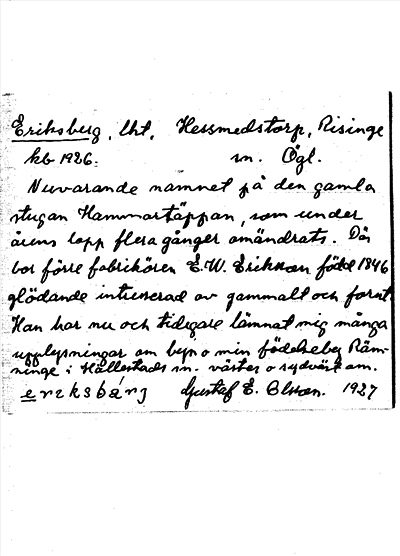 Eriksberg, lht, Hessmedstorp, Risinge
kb 1926. sn. Ögl.
Nuvarande namnet på den gamla
stugan Hammartäppan, som under
årens lopp flera gånger omändrats. Där
bor förre fabrikören E. W. Erikson född 1846
glödande intresserad av gammalt och fornt.
Han har nu och tidigare lämnat mig många
upplysningar om byn o min födelseby Räm-
ninge i Hällestads sn. väster o sydväst om.
Gustaf E. Olsson. 1927